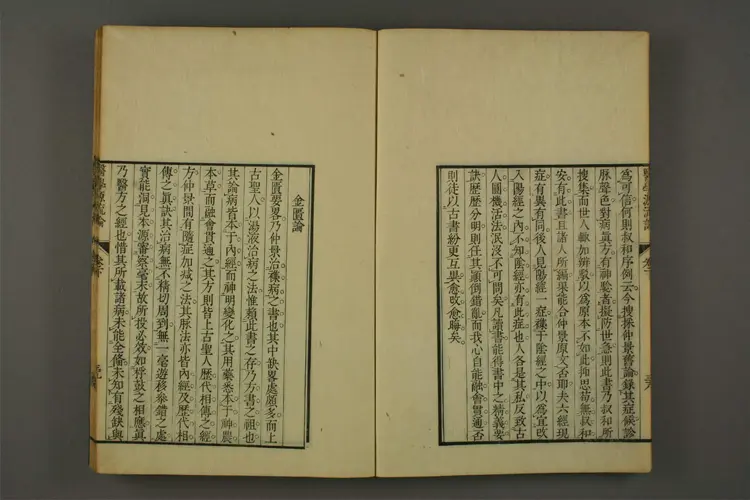 爲可信何則叔和序例云今搜採仲景舊論錄其症候診
脉聲色對病眞方有神驗者擬防世急則此書乃叔和所
搜集而世人輒加辨駁以爲原本不如此抑思苟無叔和
安有此書且諸人所編果能合仲景原文否耶夫六經現
症有異有同後人見陽經一症雜于陰經之中以爲宜改
入陽經之內不知陰經亦有此症也人各是其私反致古
人圓機活法泯沒不可問矣凡讀書能得書中之精義要
訣歷歷分明則任其顛倒錯亂而我心自能融會貫通否
則徒以古書紛更互異愈改愈晦矣
金匱論
金匱要畧乃仲景治雜病之書也其中缺畧處頗多而上
古聖人以湯液治病之法惟賴此書之存乃方書之祖也
其論病皆本于內經而神明變化之其用藥悉本于神農
本草而融會貫通之其方則皆上古聖人歷代相傳之經
方仲景間有隨症加減之法其脉法亦皆內經及歷代相
傳之眞訣其治病無不精切周到無一毫遊移參錯之處
實能洞見本源審察毫末故所投必效如桴鼓之相應眞
乃醫方之經也惜其所載諸病未能全備未知有殘缺與
醫學源流論